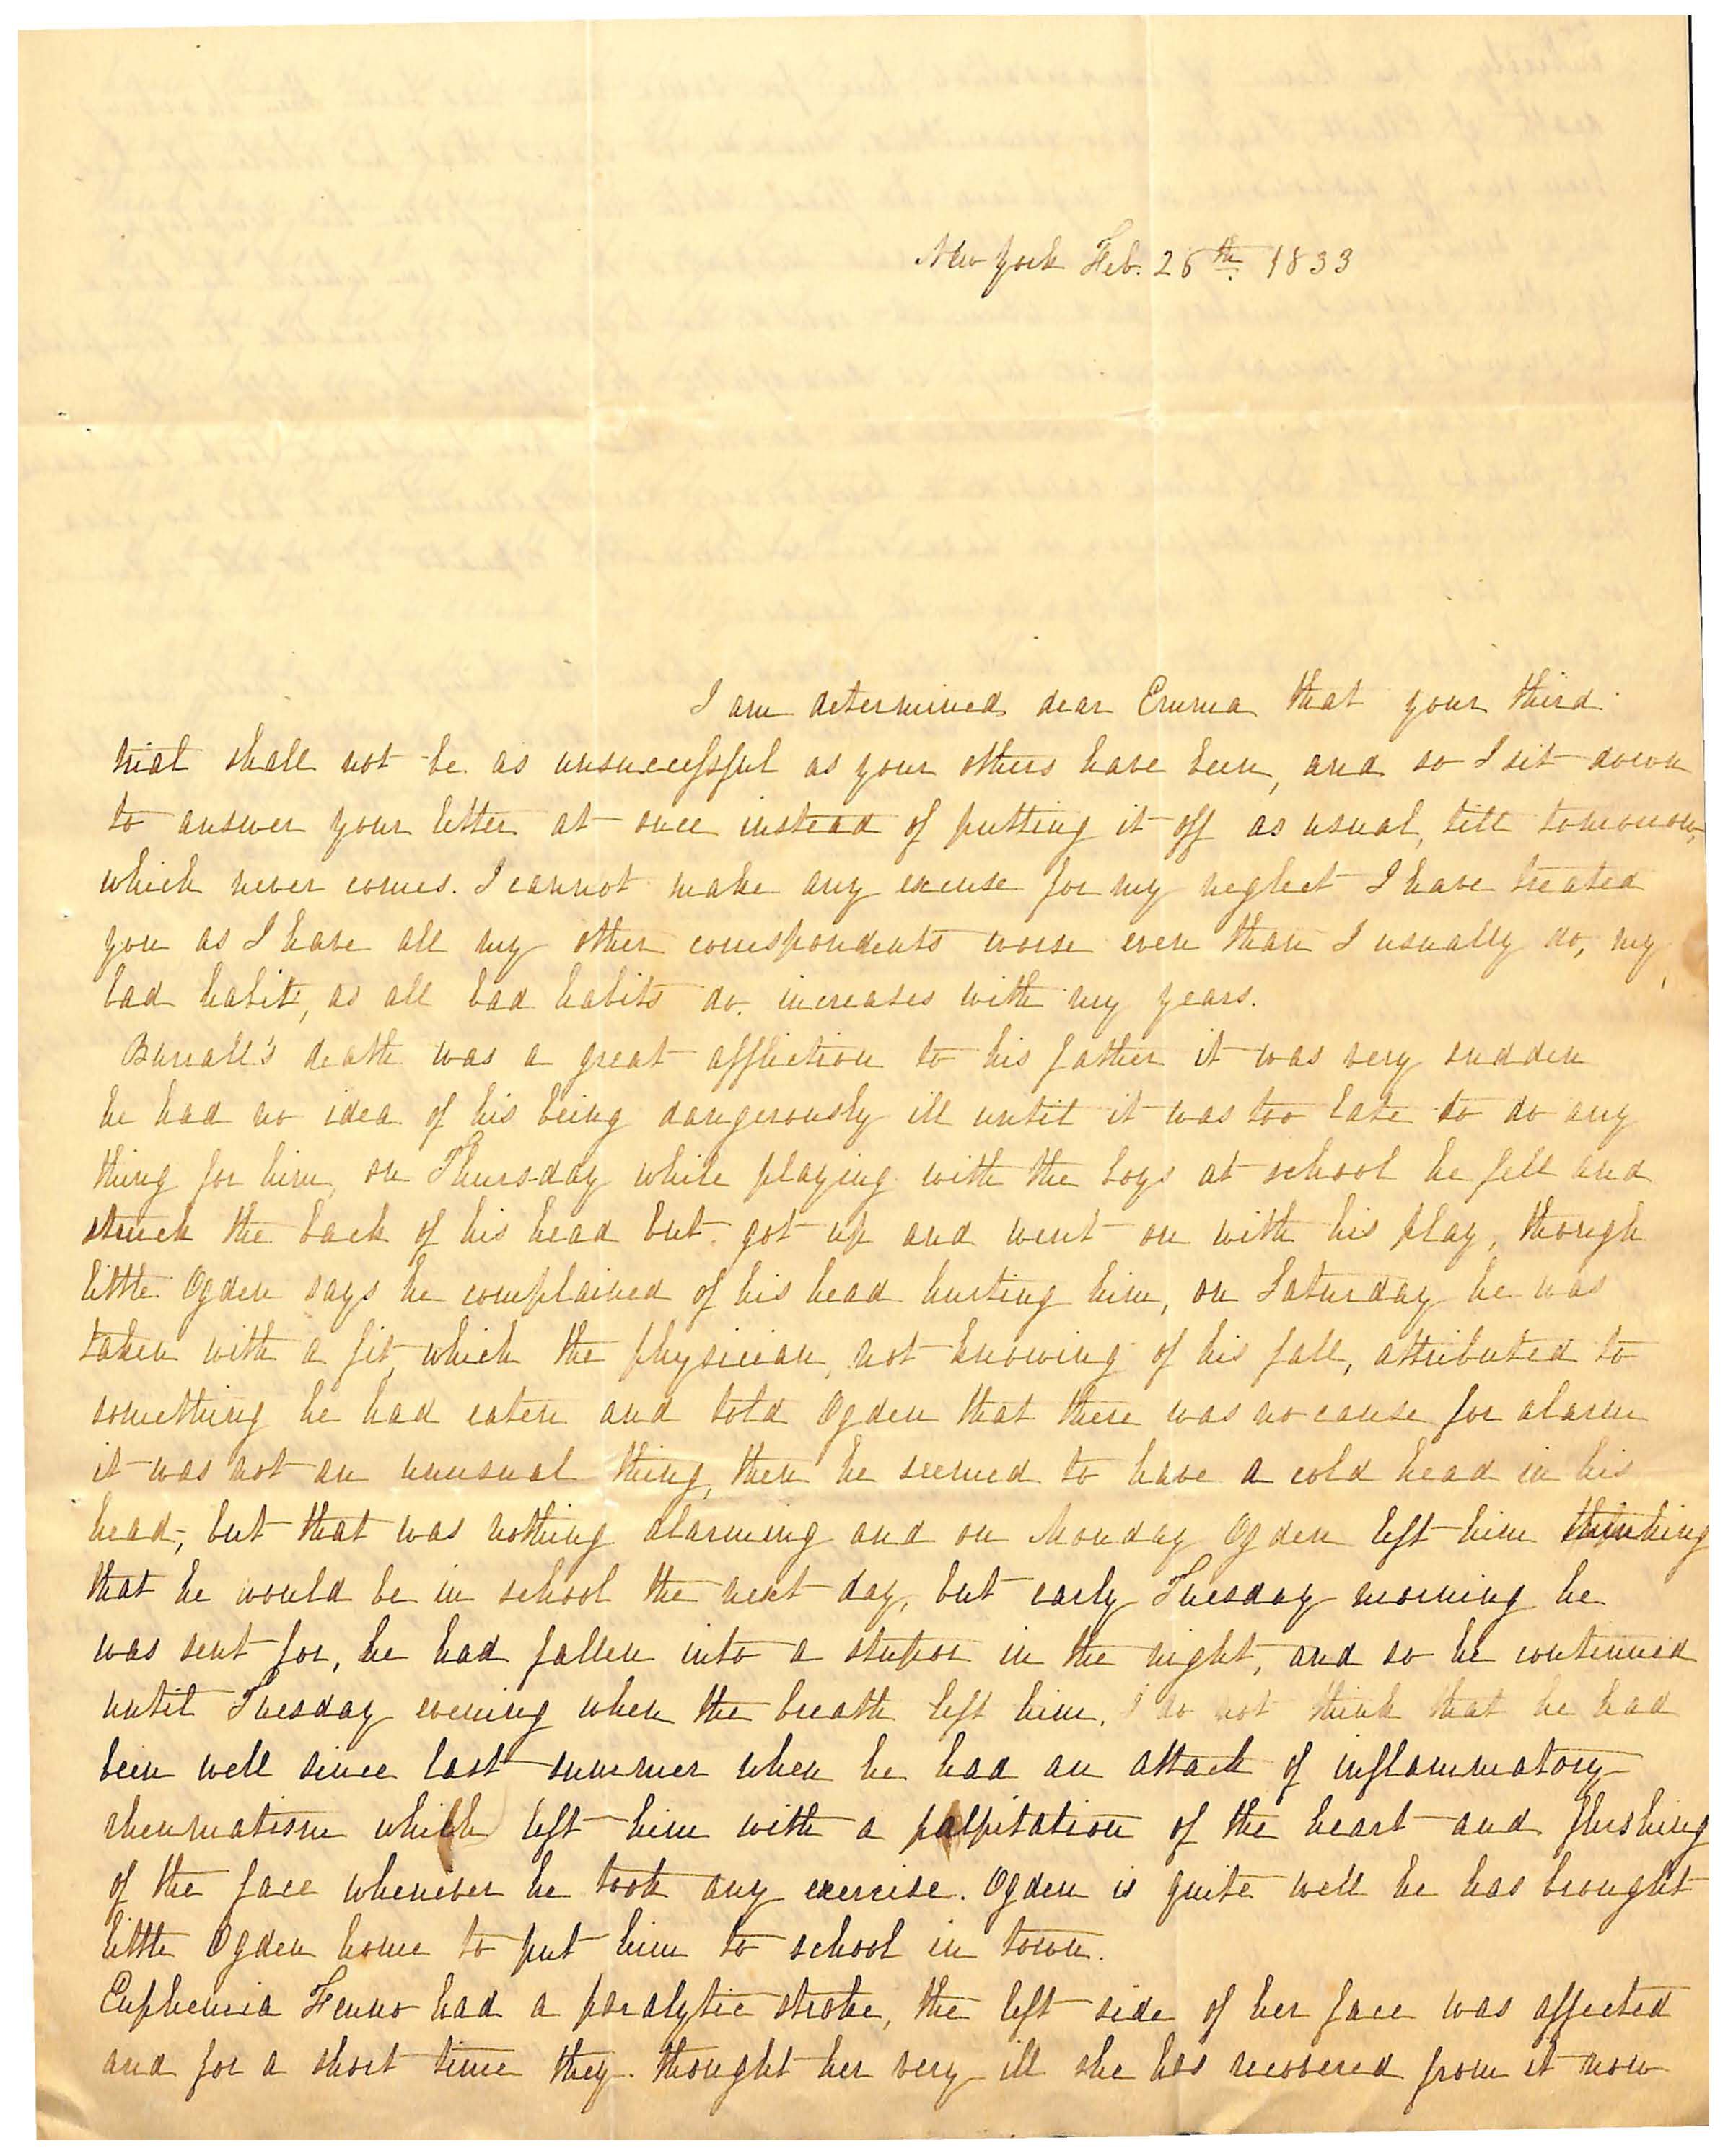 New York Feb. 26th 1833
I am determined dear Emma that your third
trial shall not be as unsuccessful as your others have been, and so I sit down
to answer your letter at once instead of putting it off as usual, till tomorrow,
which never comes. I cannot make any excuse for my neglect I have treated
you as I have all my other correspondents worse even than I usually do, my
bad habit, as all bad habits do. increases with my years.
Burrall's death was a great affliction to his father it was very sudden
he had no idea of his being dangerously ill until it was too late to do any
thing for him, on Thursday while playing with the boys at school he fell and
struck the back of his head but got up and went on with his play, though
little Ogden says he complained of his head hurting him, on Saturday he was
taken with a fit, which the physician, not knowing of his fall, attributed to
something he had eaten and told Ogden that there was no cause for alarm
it was not an unusual thing, then he seemed to have a cold head in his
head, but that was nothing alarming and on Monday Ogden left him thinking
that he would be in school the next day, but early Tuesday morning he
was sent for, he had fallen into a stupor in the night, and so he continued
until Tuesday evening when the breath left him. I do not think that he had
been well since last summer when he had an attack of inflammatory
rheumatism which left him with a palpitation of the heart and flushing
of the face whenever he took any exercise. Ogden is quite well he has brought
little Ogden home to put him to school in town.
Euphemia Fenno had a paralytic stroke, the left side of her face was affected
and for a short time they thought her very ill she has recovered from it now